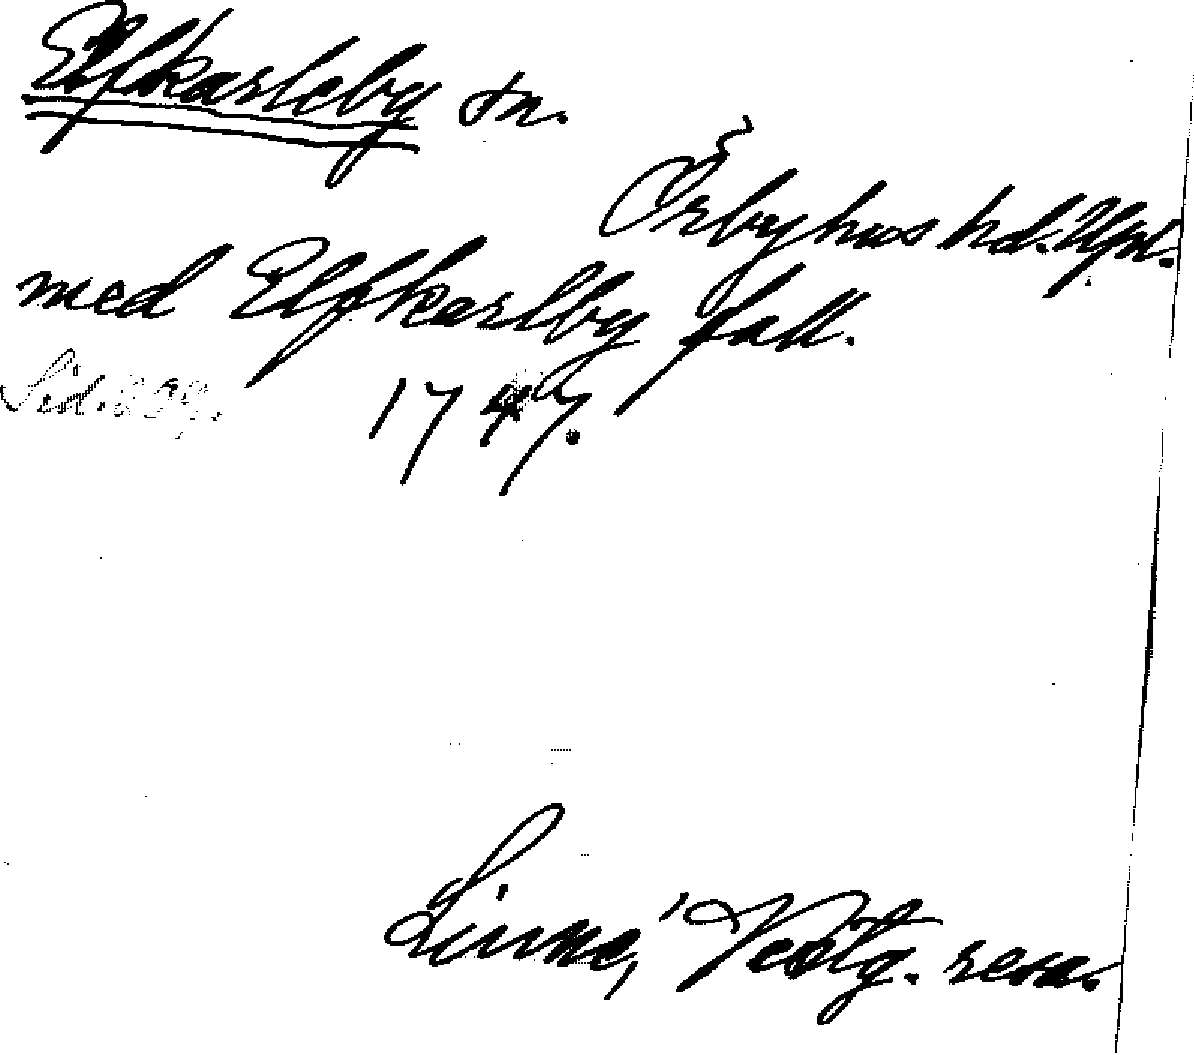 Elfkarleby sn.
Örbyhus hd. Upl.
med Elfkarlby fall.
Sid.
1747.
Linné, Vestg. resa.